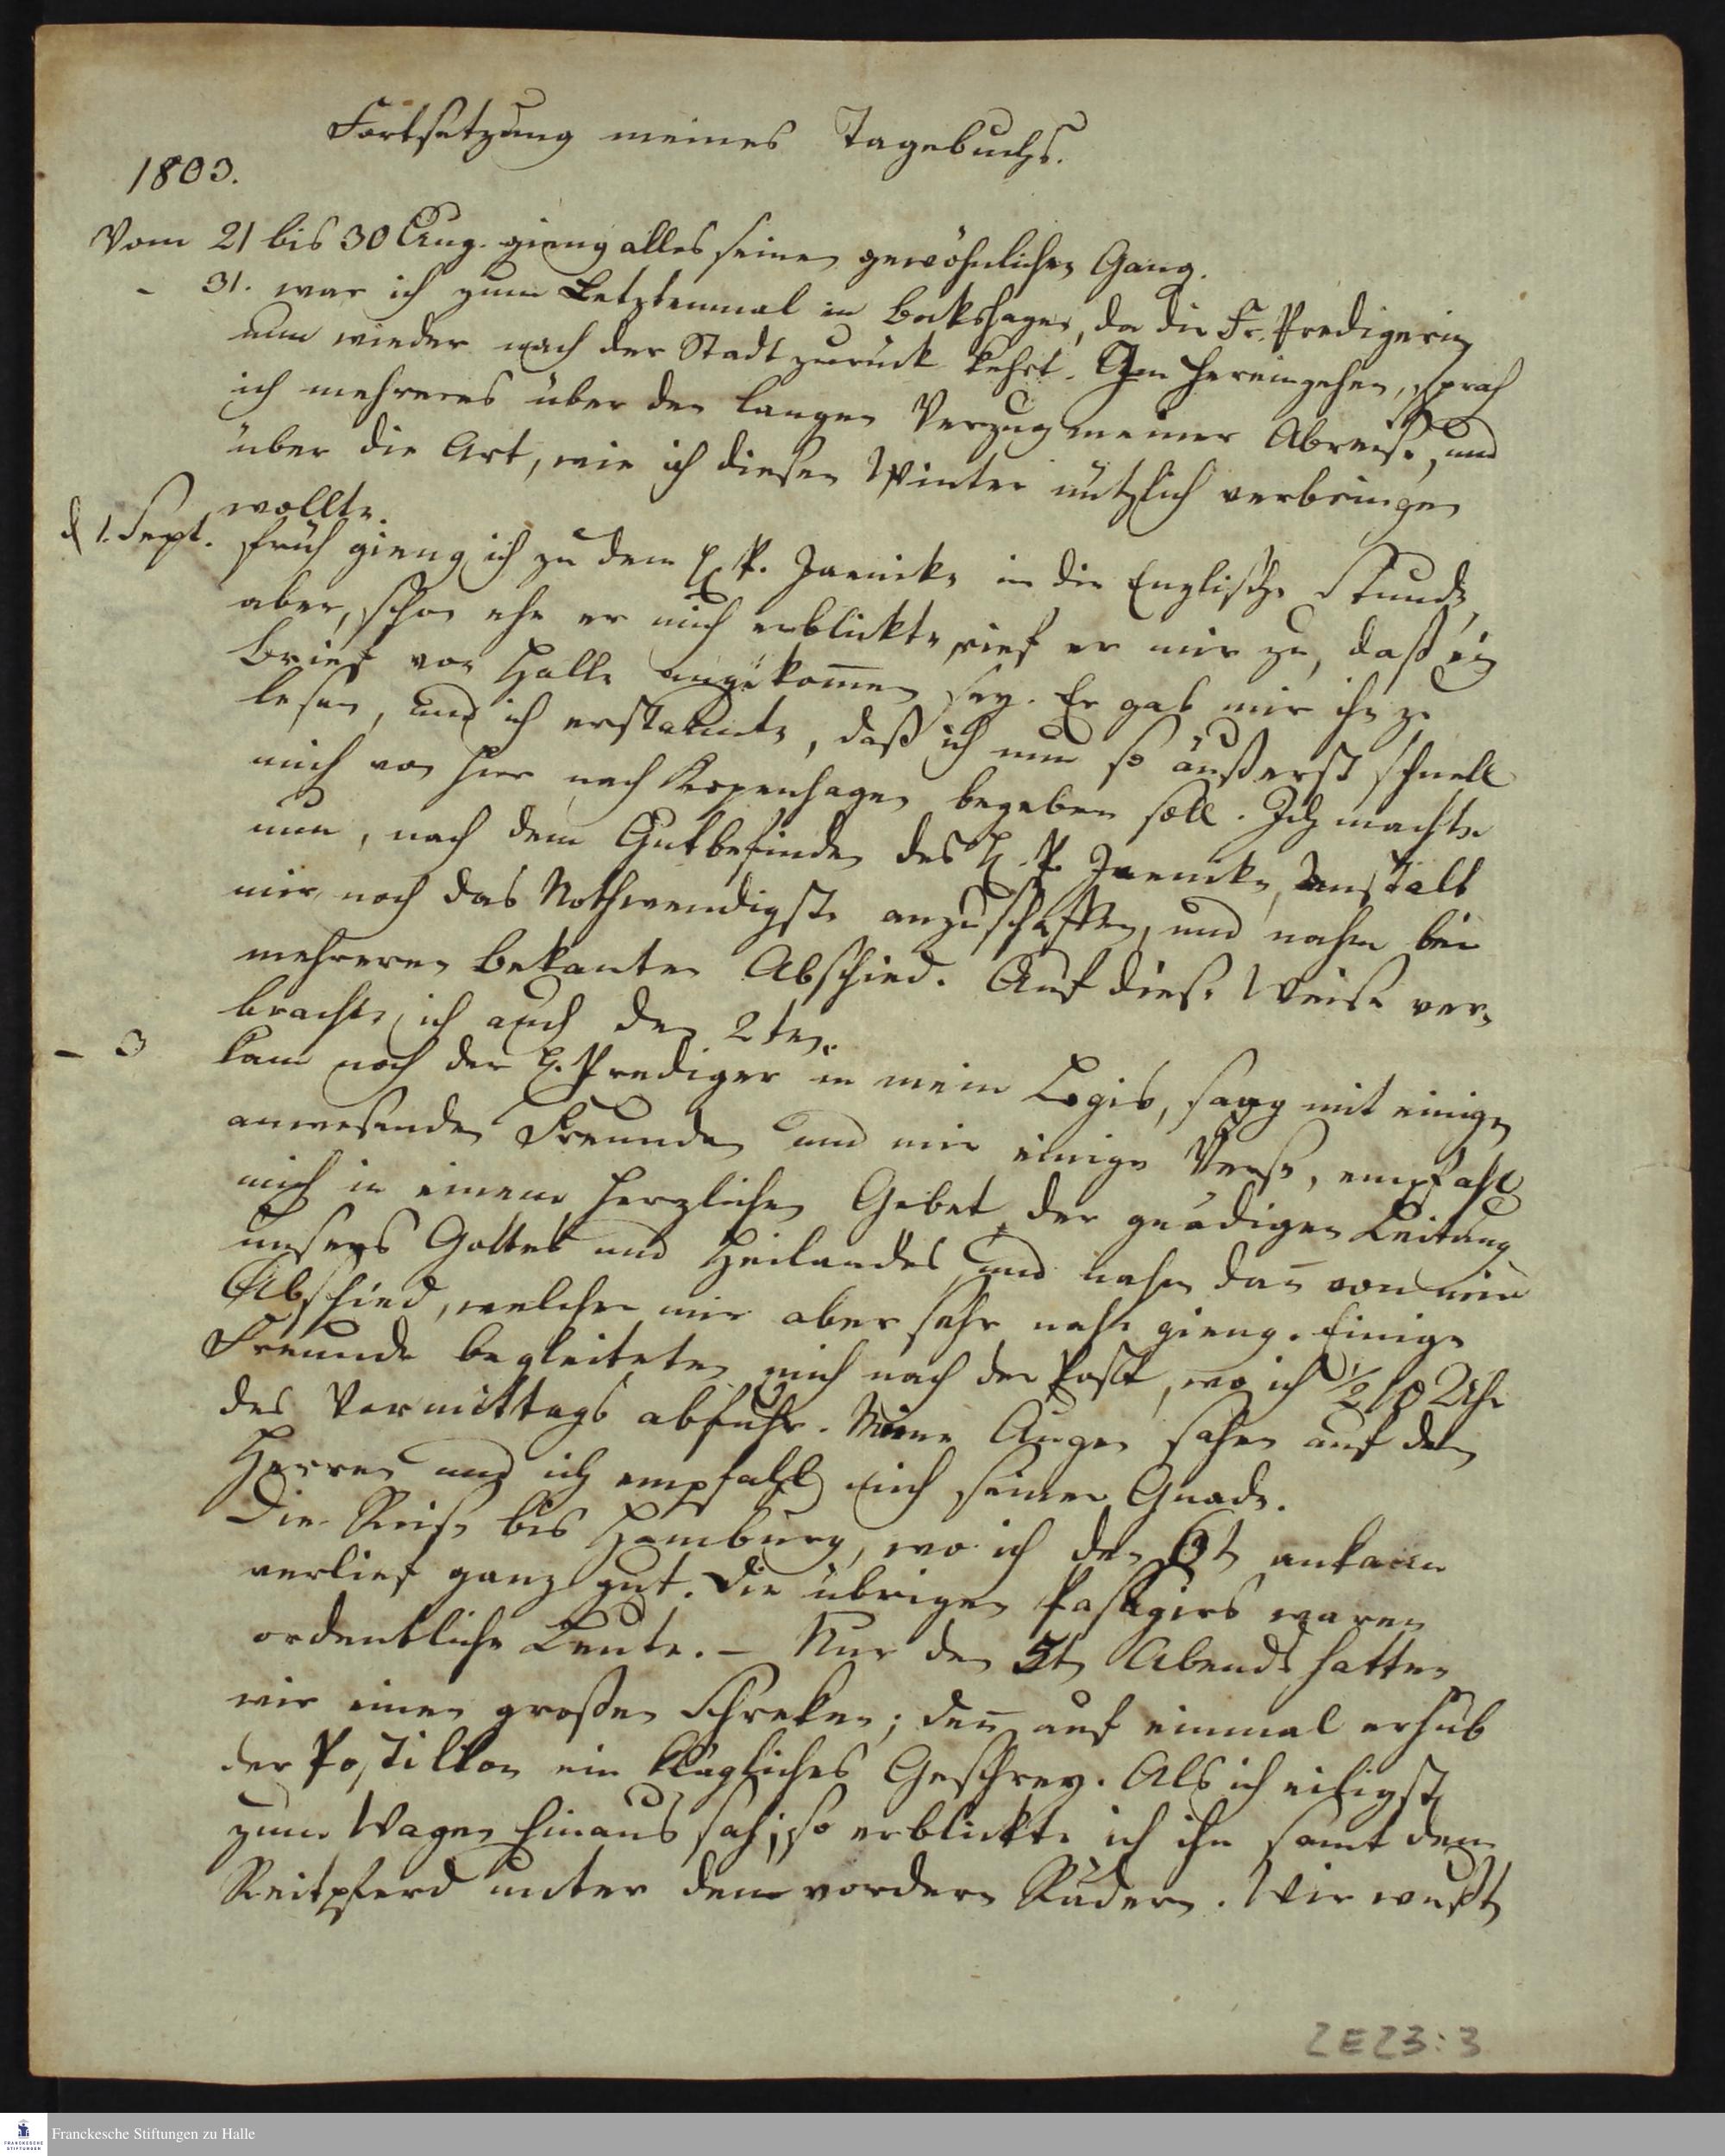 Fortsetzung meines Tagebuchs.
1803.
Vom 21 bis 30 Aug. gieng alles seinen gewöhnlichen Gang.
- 31. war ich zum Letztenmal in Bokshagen, da die Fr. Predigerin
nun wieder nach der Stadt zurück kehrt. Im Hereingehen, sprach
ich mehreres über den langen Verzug meiner Abreise, und
über die Art, wie ich diesen Winter nützlich verbringen
wollte.
d 1. Sept. früh gieng ich zu dem H. P. Jaenicke in die Englische Stunde,
aber, schon ehe er mich erblickte, rief er mir zu, daß ein
Brief von Halle angekom̄en sey. Er gab mir ihn zu
lesen, und ich erstaunte, daß ich nun so äußerst schnell
mich von hier nach Kopenhagen begeben soll. Ich machte
nun, nach dem Gutbefinden des H. P. Jaenicke, Anstalt
mir noch das Nothwendigste anzuschaffen, und nahm bei
mehreren Bekanten Abschied. Auf diese Weise ver-
brachte ich auch den 2ten.
- 3 kam noch der H. Prediger in mein Logis, sang mit einigen
anwesenden Freunden und mir einige Verse, empfahl
mich in einem herzlichen Gebet der gnädigen Leitung
unsers Gottes und Heilandes und nahm dan̄ von mir
Abschied, welcher mir aber sehr nahe gieng. Einige
Freunde begleiteten mich nach der Post, wo ich ½ 10 Uhr
des Vormittags abfuhr. Meine Augen sahen auf den
Herren und ich empfahl mich seiner Gnade.
Die Reise bis Hamburg, wo ich den 6t ankam
verlief ganz gut. Die übrigen Passagirs waren
ordentliche Leute. - Nur den 5t Abends hatten
wir einen großen Schreken; den̄ auf einmal erhub
der Postillon ein klägliches Geschrey. Als ich eiligst
zum Wagen hinaus sah; so erblickte ich ihn samt dem
Reitpferd unter den vordern Rädern. Wir wußten
ZEZ3:3
Franckesche Stiftungen zu Halle
FRANCKESCHE
STIFTUNGEN